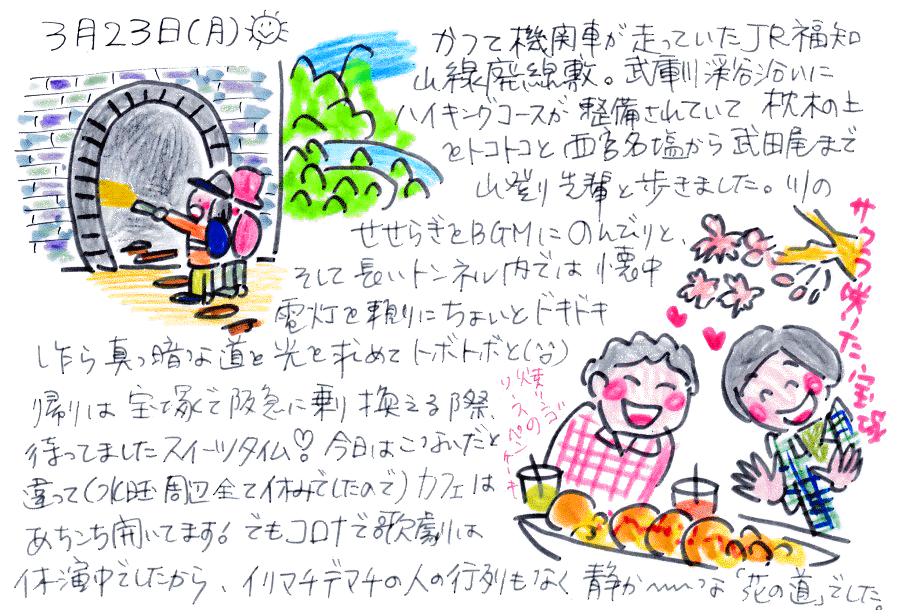 3月23日(月)
かつて機関車が走っていたJR福知
山線廃線敷。武庫川渓谷沿いに
ハイキングコースが整備されていて 枕木の上
をトコトコと西宮名塩から武田尾まで
山登り先輩と歩きました。川の
せせらぎをBGMにのんびりと、
そして長いトンネル内では懐中
電灯を頼りにちょいとドキドキ
しながら真っ暗な道を光を求めてトボトボと
帰りは宝塚で阪急に乗り換える際、
待ってましたスイーツタイム♡今日はこないだと
違って(水旺周辺全て休みでしたので)カフェは
あちこち開いてます!でもコロナで歌劇は
休演中でしたから、イリマチデマチの人の行列もなく 静か〜な「花の道」でした。
サクラ咲いた宝塚
焼リンゴの
ソースパンケーキ